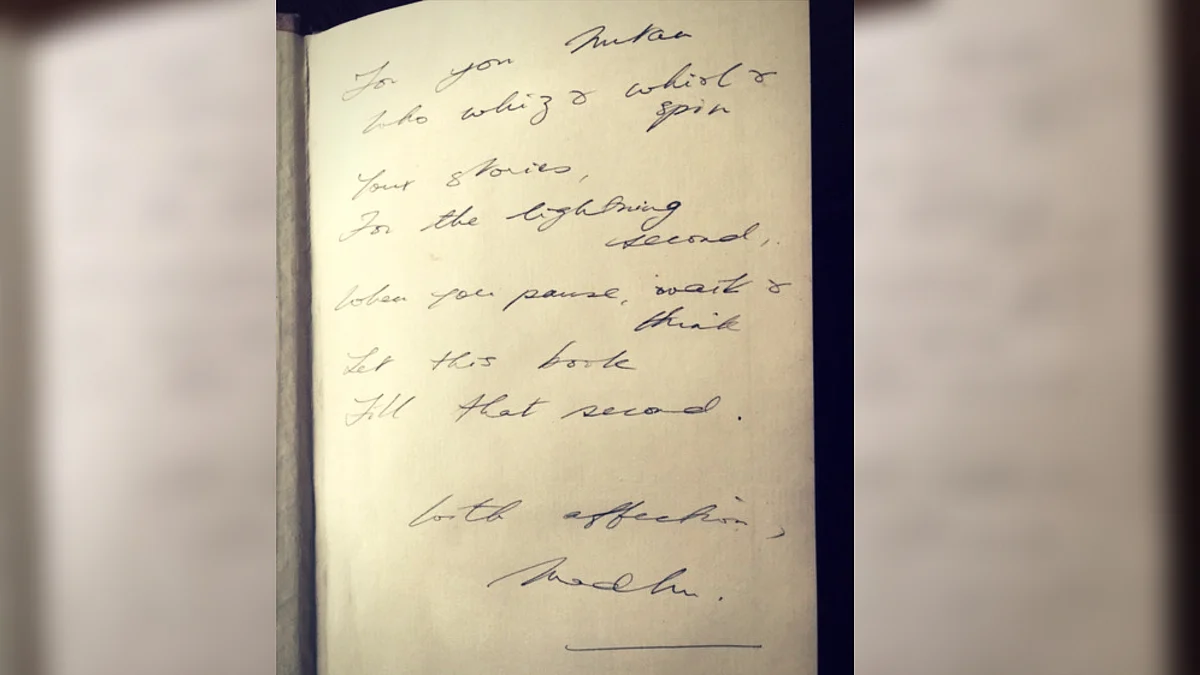 For you Nutan
Who whiz & whirl &
spin
Your stories,
For the lightning
second,
When you pause, wait &
think
Let this book
Fill that second.
With affection,
Madhu.